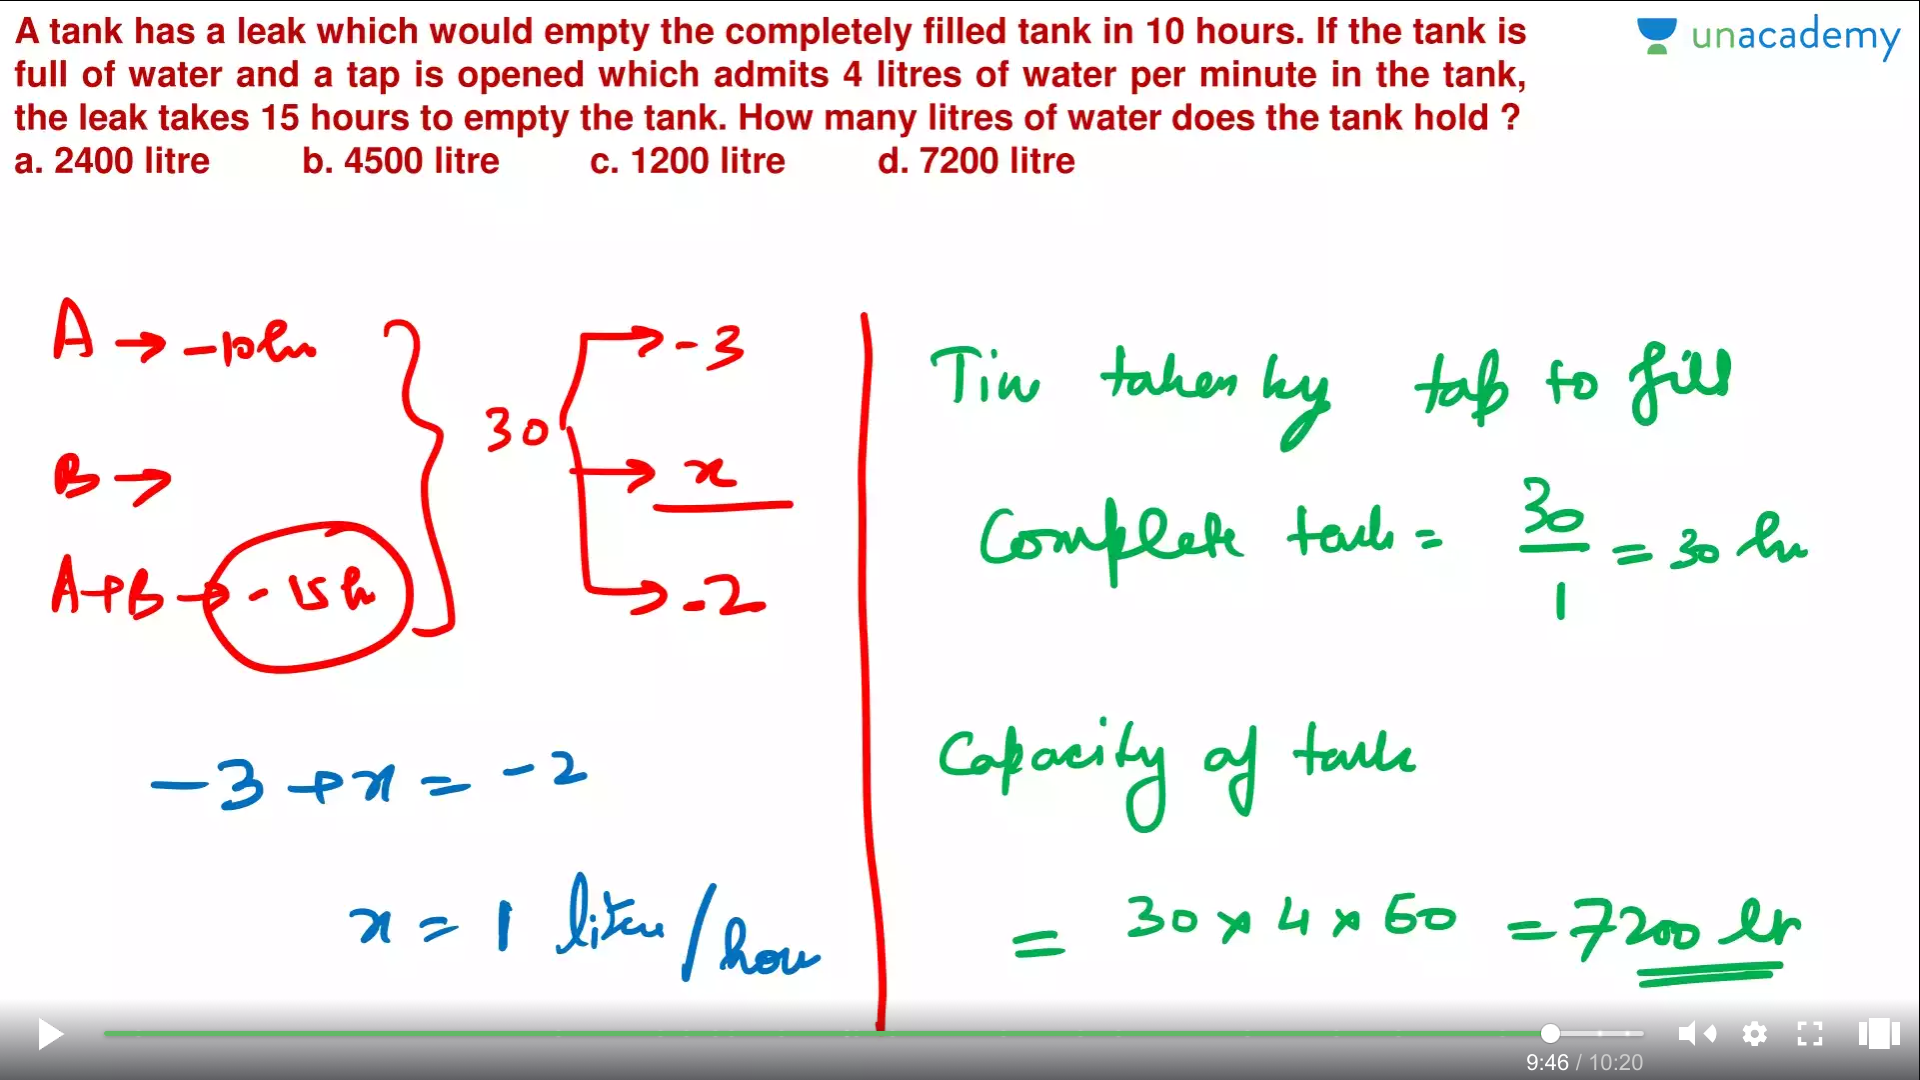 A tank has a leak which would empty the completely filled tank in 10 hours. If the tank is
full of water and a tap is opened which admits 4 litres of water per minute in the tank,
the leak takes 15 hours to empty the tank. How many litres of water does the tank hold ?
a. 2400 litre b. 4500 litre c. 1200 litre d. 7200 litre
unacademy
A → -10hr
B →
A+B → -15h
30
→ -3
→ x
→ -2
-3 + x = -2
x = 1 litre/hour
Time taken by tap to fill
Complete tank = 30/1 = 30 hr
Capacity of tank
= 30 × 4 × 60 = 7200 ltr
9:46 / 10:20